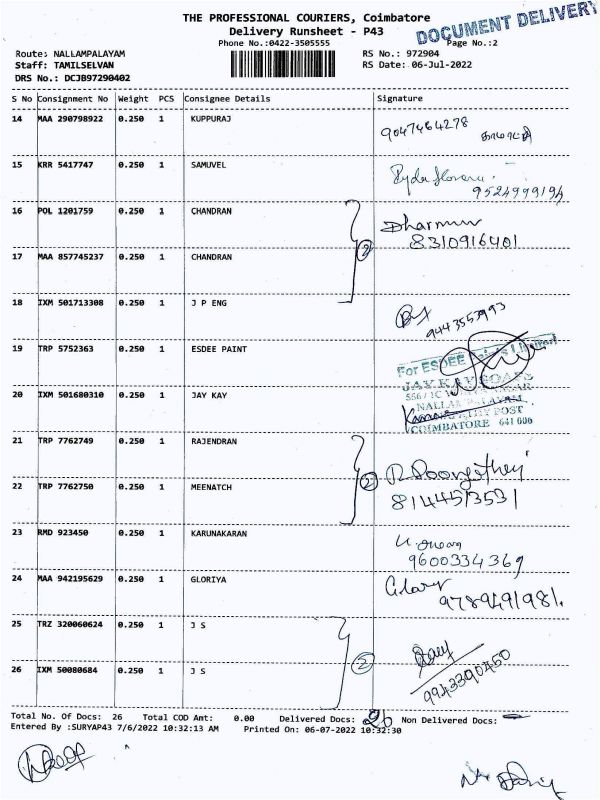 THE PROFESSIONAL COURIERS, Coimbatore
DOCUMENT DELIVERY
Delivery Runsheet - P43
Phone No.:0422-3505555
Page No.:2
Route: NALLAMPALAYAM
RS No.: 972904
Staff: TAMILSELVAN
RS Date: 06-Jul-2022
DRS No.: DCJB97290402
S No Consignment No Weight PCS Consignee Details Signature
14 MAA 290798922 0.250 1 KUPPURAJ
9047464278
15 KRR 5417747 0.250 1 SAMUVEL
9524999194
16 POL 1201759 0.250 1 CHANDRAN
8310916401
2
17 MAA 857745237 0.250 1 CHANDRAN
18 IXM 501713308 0.250 1 J P ENG
9443553993
19 TRP 5752363 0.250 1 ESDEE PAINT
For ESDEE Limited
20 IXM 501680310 0.250 1 JAY KAY
JAY KAY
NALLAMPALAYAM
POST
COIMBATORE 641 006
21 TRP 7762749 0.250 1 RAJENDRAN
2
22 TRP 7762750 0.250 1 MEENATCH
8144513531
23 RMD 923450 0.250 1 KARUNAKARAN
9600334369
24 MAA 942195629 0.250 1 GLORIYA
Glory
9789491981.
25 TRZ 320060624 0.250 1 J S
2
26 IXM 50080684 0.250 1 J S
9943390450
Total No. Of Docs: 26 Total COD Amt: 0.00 Delivered Docs: 26 Non Delivered Docs: —
Entered By :SURYAP43 7/6/2022 10:32:13 AM Printed On: 06-07-2022 10:32:30